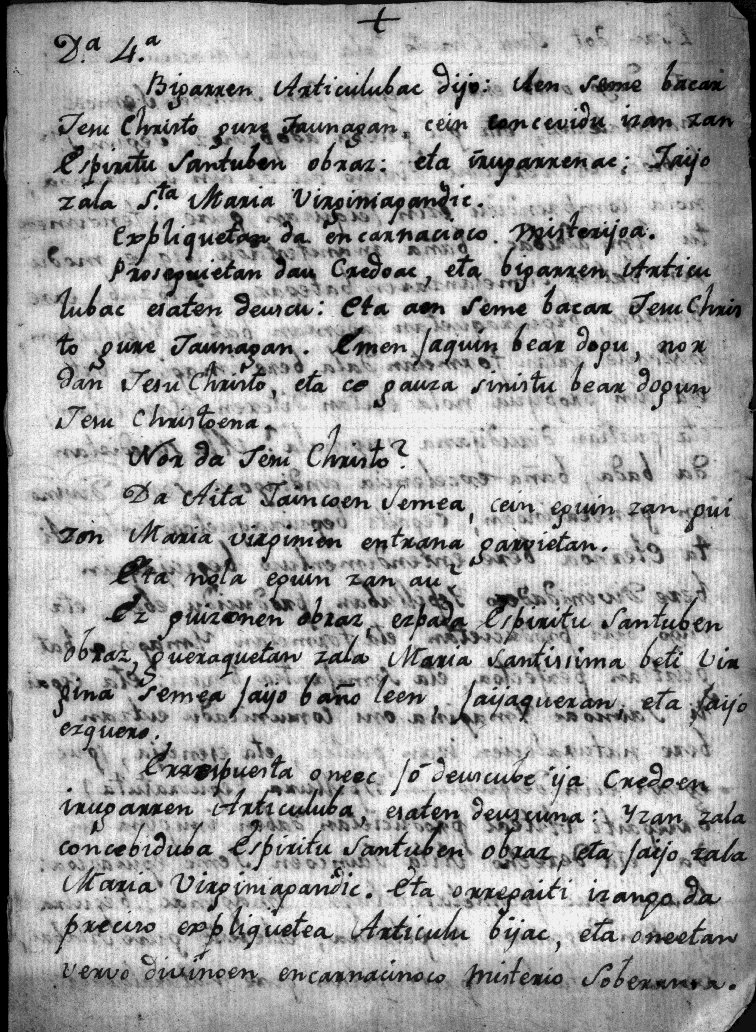 +
D.ª 4.ª
Bigarren Articulubac dijo: Aen seme bacar
Jesu Christo gure Jaunagan, cein concevidu izan zan
Espiritu Santuben obraz: eta irugarrenac: Jaijo
zala S.ta Maria Virginiagandic.
Expliquetan da encarnacioco misterijoa.
Proseguietan dau Credoac, eta bigarren Articu
lubac esaten deuscu: Eta aen seme bacar Jesu Chris
to gure Jaunagan. Emen jaquin bear dogu, nor
dan Jesu Christo, eta ce gauza sinistu bear dogun
Jesu Christoena.
Nor da Jesu Christo?
Da Aita Jaincoen Semea, cein eguin zan gui
zon Maria virginien entrana garbietan.
Eta nola eguin zan au?
Ez guizonen obraz ezpada Espiritu Santuben
obraz, gueraquetan zala Maria Santissima beti Vir
gina Semea jaijo baño leen, jaijaqueran, eta jaijo
ezquero.
Errespuesta oneec jo deuscube ija Credoen
irugarren Articuluba, esaten deuscuna: Yzan zala
concebiduba Espiritu Santuben obraz, eta jaijo zala
Maria Virginiagandic. Eta orregaiti izango da
preciso expliquetea Articulu bijac, eta oneetan
vervo divinoen encarnacinoco misterio Soberanua.